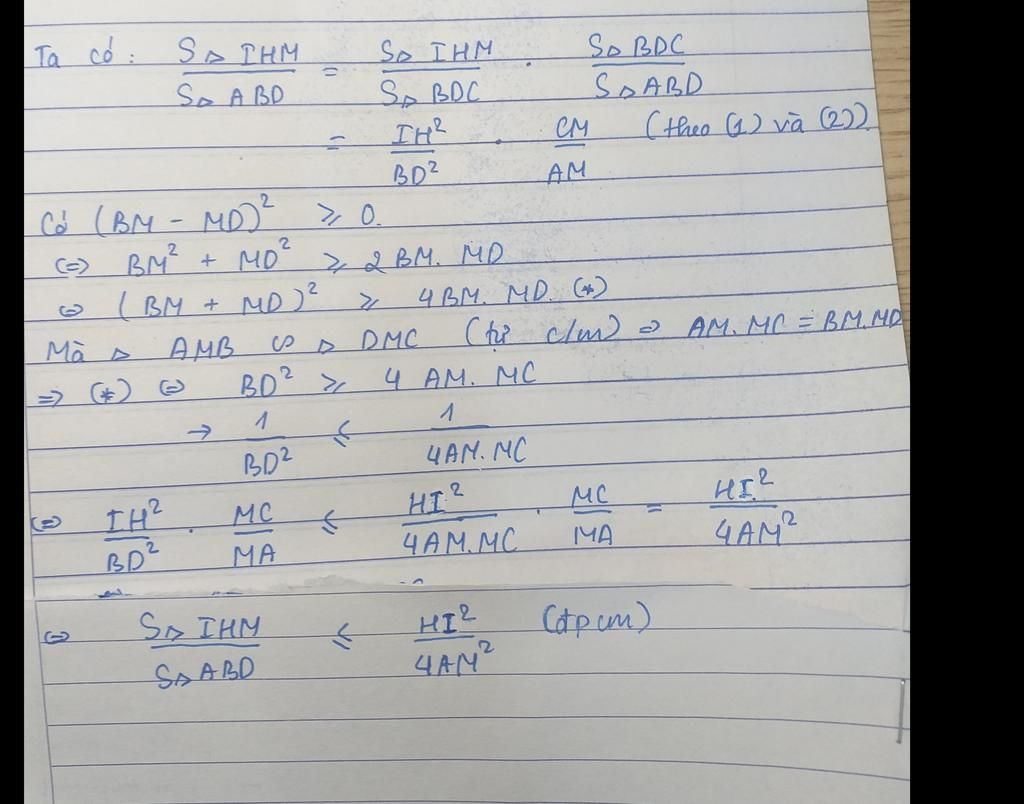 Ta có: S▷IHM/S▷ABD = S▷IHM/S▷BDC . S▷BDC/S▷ABD
= IH²/BD² . CM/AM (theo (1) và (2))
Có (BM - MD)² ≥ 0.
(=) BM² + MD² ≥ 2BM. MD
⇔ (BM + MD)² ≥ 4BM. MD. (*)
Mà ▷ AMB ∽ ▷ DMC (tự c/m) ⇒ AM.MC = BM.MD
⇒ (*) ⇔ BD² ≥ 4 AM. MC
→ 1/BD² ≤ 1/4AM.MC
⇔ IH²/BD² . MC/MA ≤ HI²/4AM.MC . MC/MA = HI²/4AM²
⇔ S▷IHM/S▷ABD ≤ HI²/4AM² (đpcm)